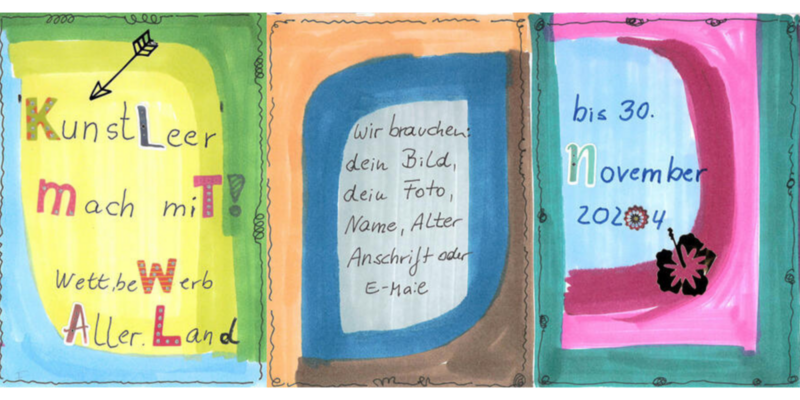 KunstLeer
mach miT!
Wett,beWerb
Aller.Land
wir brauchen:
dein Bild,
dein Foto,
Name, Alter
Anschrift oder
E-Maie
bis 30.
November
2024